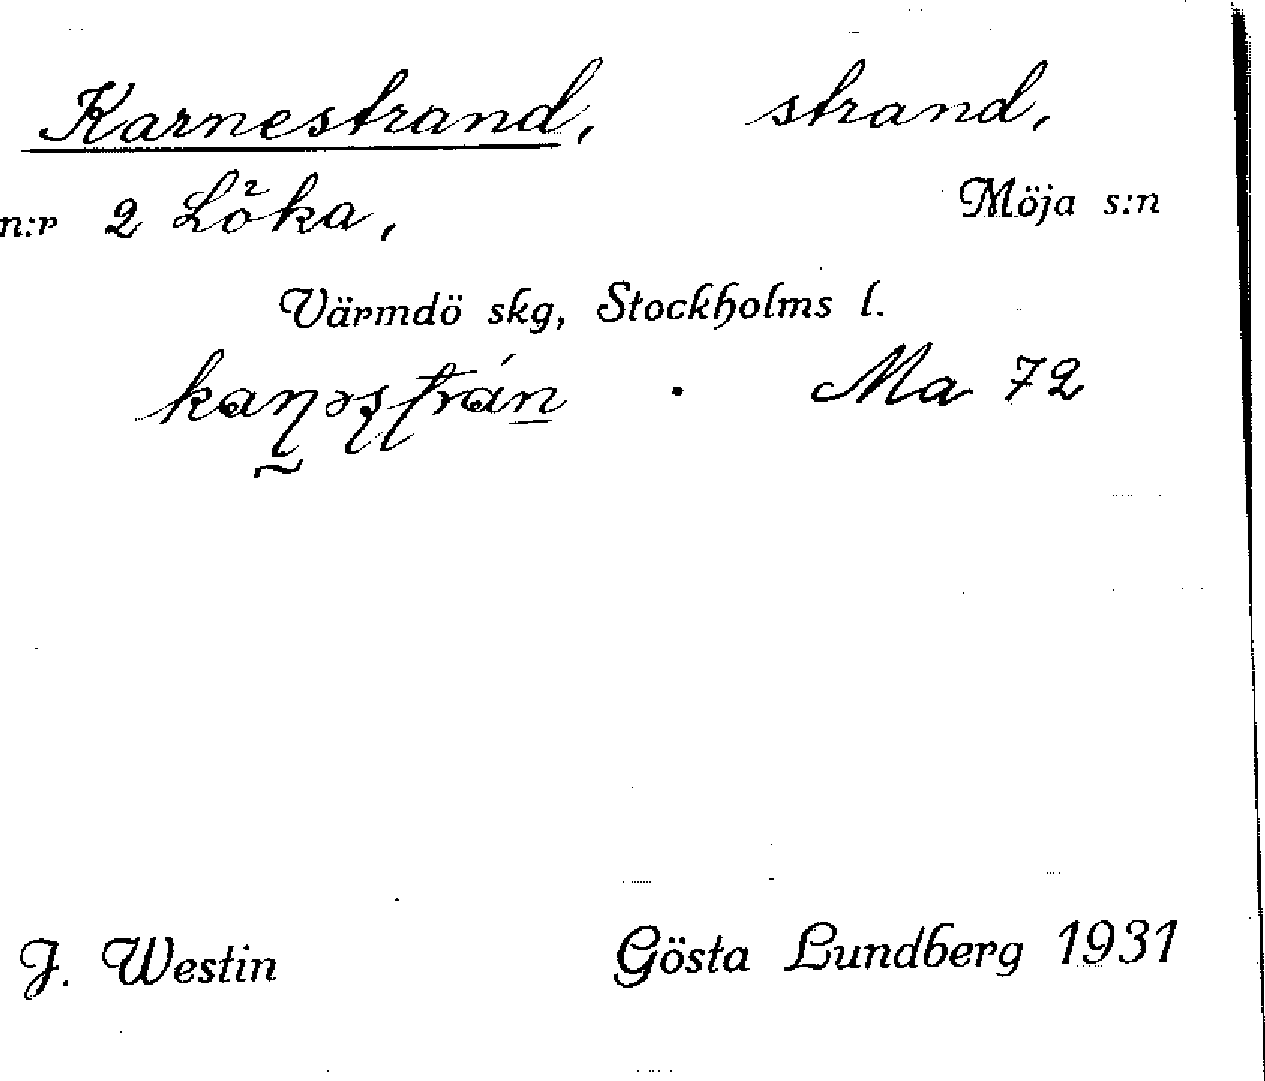 Karnestrand, strand,
n:r 2 Löka, Möja s:n
Värmdö skg, Stockholms l.
kaɳəʂʈrán . Ma 72
J. Westin Gösta Lundberg 1931